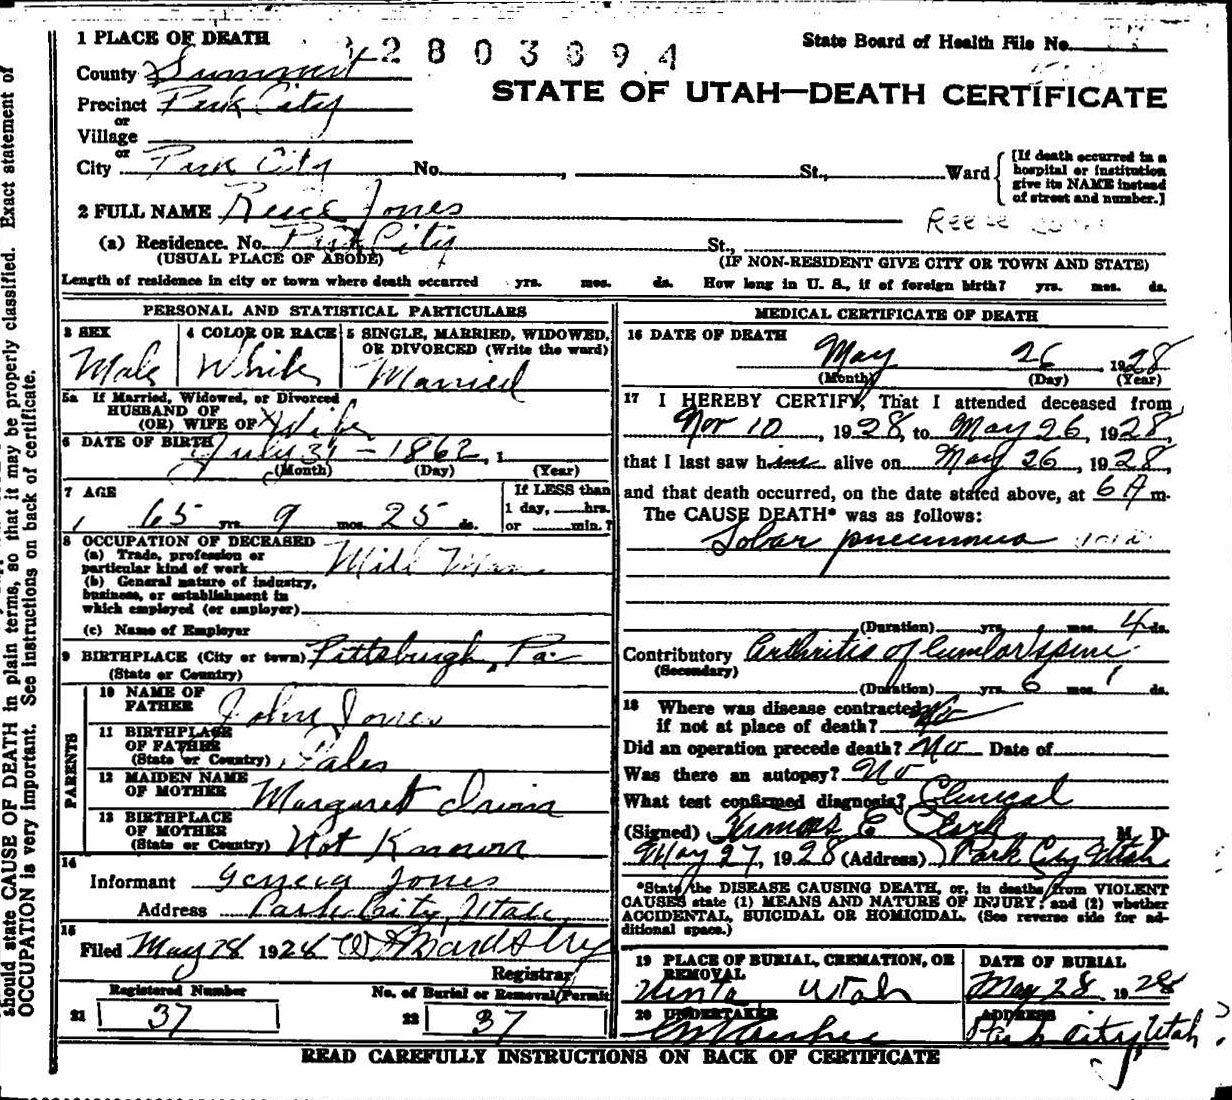 should state CAUSE OF DEATH in plain terms, so that it may be properly classified. Exact statement of
OCCUPATION is very important. See instructions on back of certificate.
1 PLACE OF DEATH
2803894
State Board of Health File No.
County Summit
STATE OF UTAH—DEATH CERTIFICATE
Precinct Park City
or
Village
or
City Park City No. , St., Ward
[If death occurred in a
hospital or institution
give its NAME instead
of street and number.]
2 FULL NAME Reece Jones
REECE
(a) Residence. No. Park City St.,
(USUAL PLACE OF ABODE) (IF NON-RESIDENT GIVE CITY OR TOWN AND STATE)
Length of residence in city or town where death occurred yrs. mos. ds. How long in U. S., if of foreign birth? yrs. mos. ds.
PERSONAL AND STATISTICAL PARTICULARS
3 SEX
Male
4 COLOR OR RACE
White
5 SINGLE, MARRIED, WIDOWED,
OR DIVORCED (Write the word)
Married
5a If Married, Widowed, or Divorced
HUSBAND OF
(OR) WIFE OF Wife
6 DATE OF BIRTH July 31 - 1862, 1
(Month) (Day) (Year)
7 AGE
65 yrs. 9 mos. 25 ds.
If LESS than
1 day, hrs.
or min.?
8 OCCUPATION OF DECEASED
(a) Trade, profession or
particular kind of work Mill Man
(b) General nature of industry,
business, or establishment in
which employed (or employer)
(c) Name of Employer
9 BIRTHPLACE (City or town) Pittsburgh, Pa.
(State or Country)
PARENTS
10 NAME OF
FATHER John Jones
11 BIRTHPLACE
OF FATHER
(State or Country) Wales
12 MAIDEN NAME
OF MOTHER Margaret Irvin
13 BIRTHPLACE
OF MOTHER
(State or Country) Not Known
14
Informant Jones
Address Park City, Utah
15
Filed May 28 1928
Registrar
Registered Number
21 37
No. of Burial or Removal Permit
22 37
MEDICAL CERTIFICATE OF DEATH
16 DATE OF DEATH
May 26, 1928
(Month) (Day) (Year)
17 I HEREBY CERTIFY, That I attended deceased from
Nov 10, 1928, to May 26, 1928,
that I last saw him alive on May 26, 1928,
and that death occurred, on the date stated above, at 6 A m.
The CAUSE DEATH* was as follows:
Lobar pneumonia
(Duration) yrs. mos. 4 ds.
Contributory Arthritis of lumbar spine
(Secondary)
(Duration) yrs. 6 mos. ds.
18 Where was disease contracted
if not at place of death? No
Did an operation precede death? No Date of
Was there an autopsy? No
What test confirmed diagnosis? Clinical
(Signed) E Clark M. D.
May 27, 1928 (Address) Park City Utah
*State the DISEASE CAUSING DEATH, or, in deaths from VIOLENT
CAUSES state (1) MEANS AND NATURE OF INJURY; and (2) whether
ACCIDENTAL, SUICIDAL OR HOMICIDAL. (See reverse side for ad-
ditional space.)
19 PLACE OF BURIAL, CREMATION, OR
REMOVAL
Uinta Utah
DATE OF BURIAL
May 28 1928
20 UNDERTAKER
ADDRESS
Park City, Utah
READ CAREFULLY INSTRUCTIONS ON BACK OF CERTIFICATE